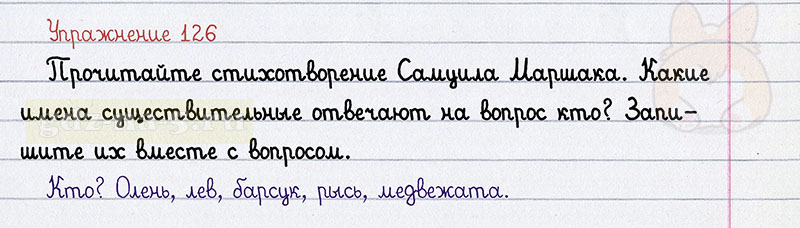 Упражнение 126
Прочитайте стихотворение Самуила Маршака. Какие
имена существительные отвечают на вопрос кто? Запи-
шите их вместе с вопросом.
Кто? Олень, лев, барсук, рысь, медвежата.